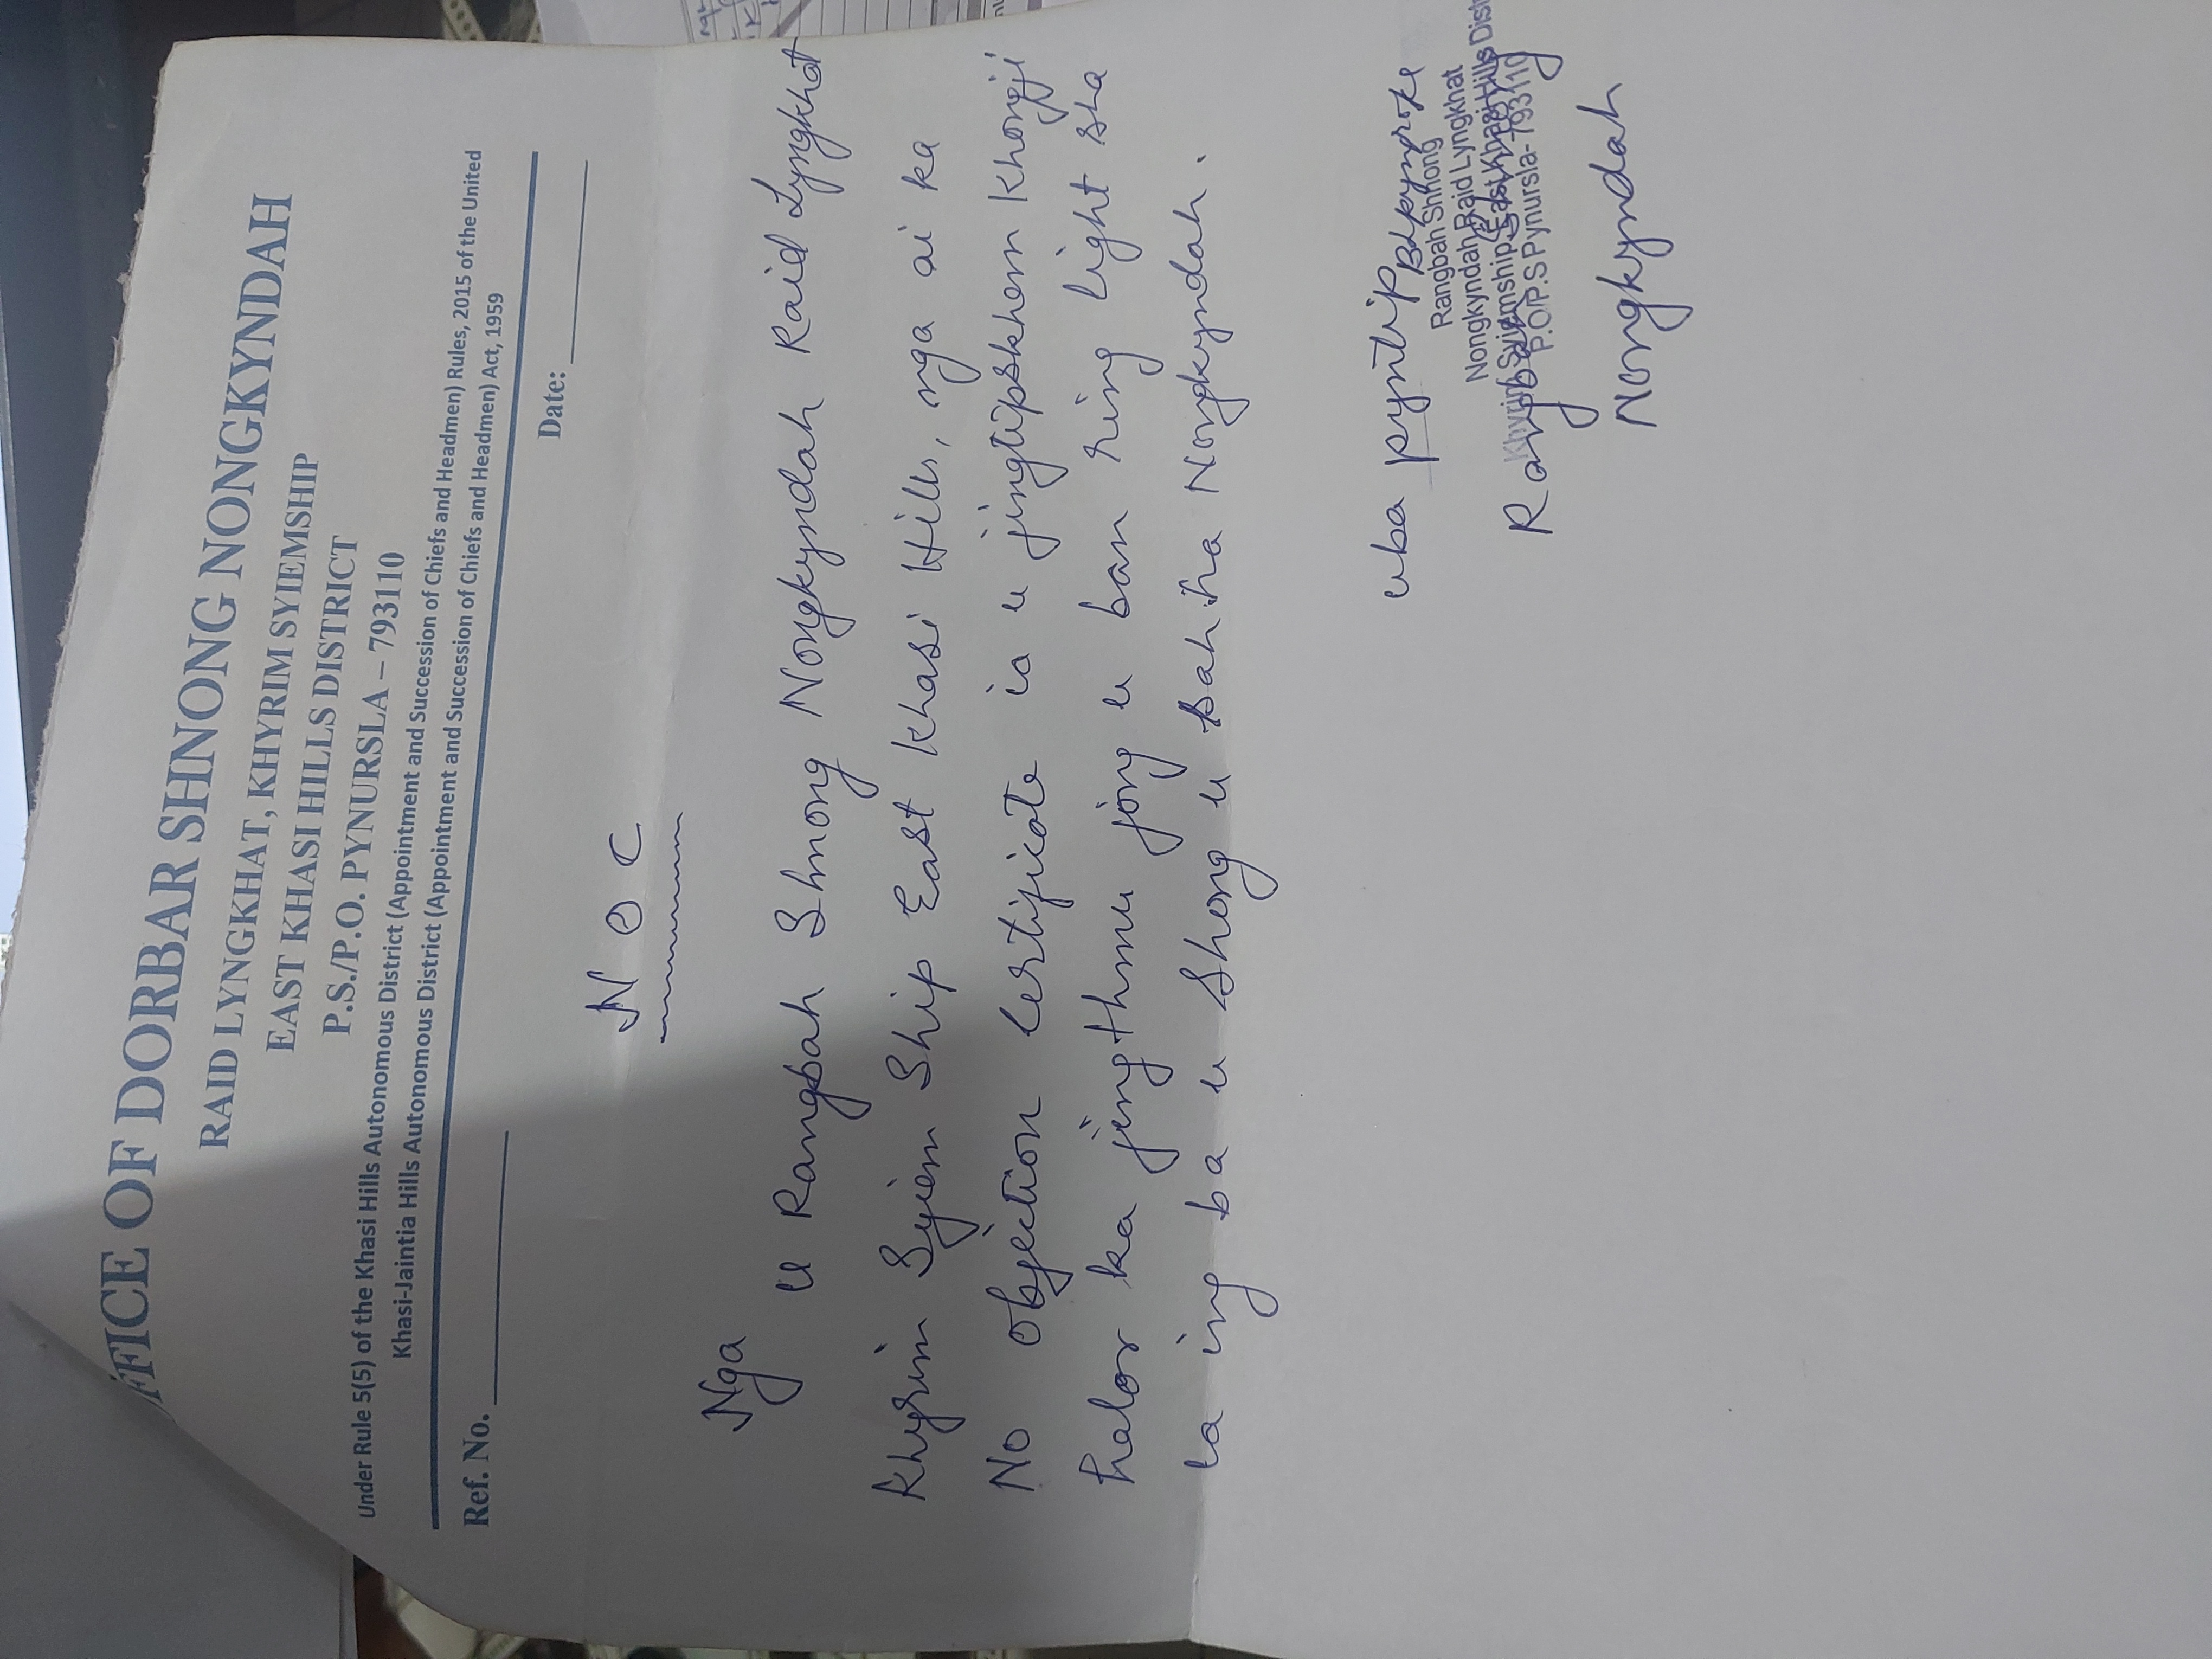 FFICE OF DORBAR SHNONG NONGKYNDAH
RAID LYNGKHAT, KHYRIM SYIEMSHIP
EAST KHASI HILLS DISTRICT
P.S./P.O. PYNURSLA – 793110
Under Rule 5(5) of the Khasi Hills Autonomous District (Appointment and Succession of Chiefs and Headmen) Rules, 2015 of the United
Khasi-Jaintia Hills Autonomous District (Appointment and Succession of Chiefs and Headmen) Act, 1959
Ref. No. Date:
N O C
Nga
U Rangbah Shnong Nongkyndah Raid Lyngkhat
Khyrim Syiem Ship East Khasi Hills, nga ai ka
No objection Certificate ia u jingtipskhem Khongji
halor ka jingthmu jong u ban ring light sha
la ing ba u shong u sah ha Nongkyndah.
uba pyntip
Rangbah Shnong
Nongkyndah Raid Lyngkhat
Khyrim Syiemship, East Khasi Hills Dist
P.O/P.S Pynursla- 793110
Nongkyndah